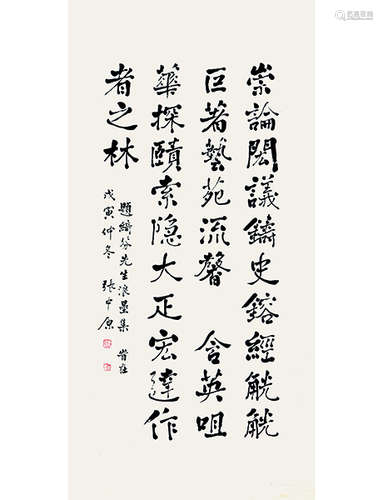 崇論閎議鑄史鎔經觥觥
巨著藝苑流馨 含英咀
華探賾索隐大正宏達作
者之林
題綺芬先生浪墨集
戊寅仲冬 張中原